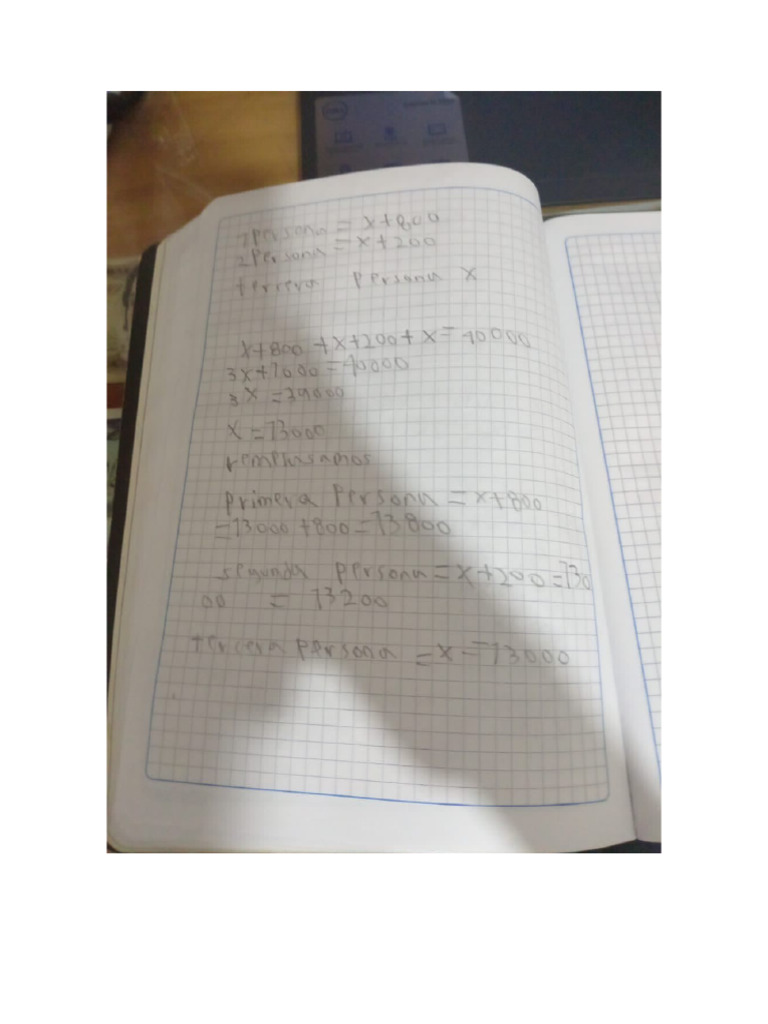 1Persona = x+800
2Persona = x+200
tercera Persona x
x+800 +x+200+x=40000
3x+1000=40000
3x=39000
x=13000
remplasamos
primera Persona =x+800
=13000+800=13800
segunda persona=x+200=130
00 = 13200
tercera persona =x=13000